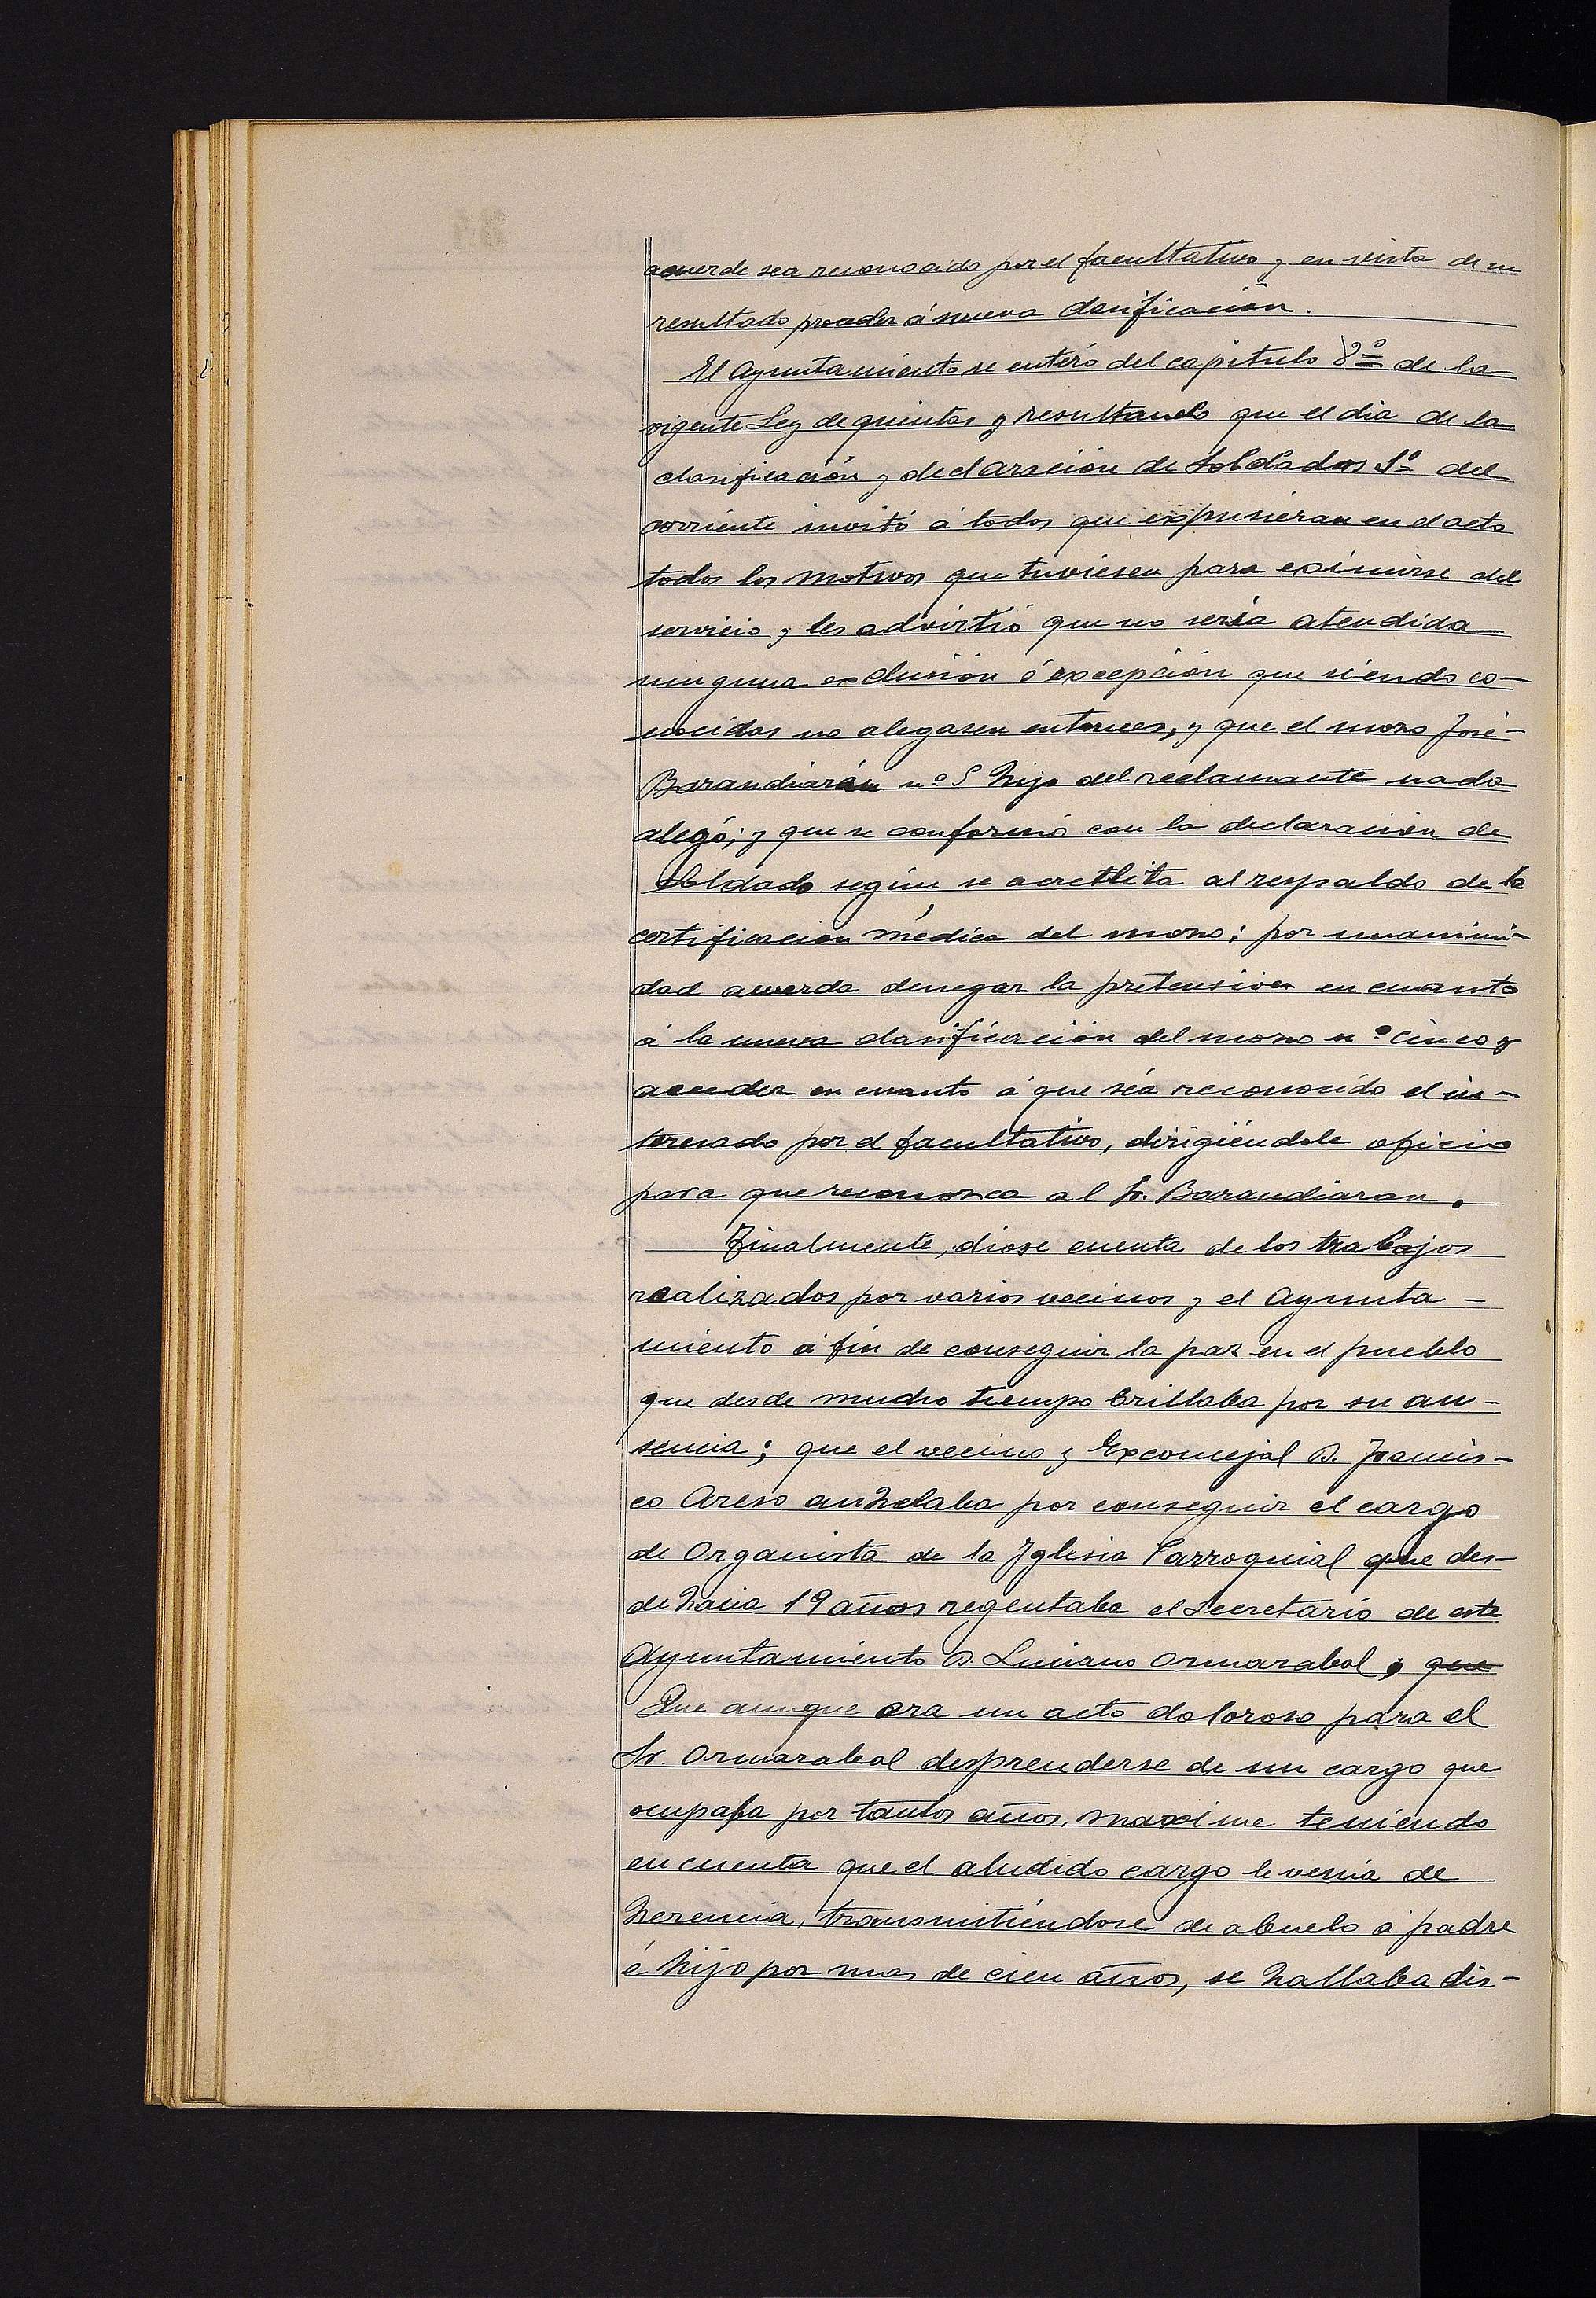 acuerde sea reconocido por el facultativo y en vista de su
resultado proceder á nueva clasificación.
El Ayuntamiento se enteró del capitulo 8º de la
vigente Ley de quintas y resultando que el dia de la
clasificación y declaración de Soldados 1º del
corriente invitó á todos que expusieran en el acto
todos los motivos que tuviesen para eximirse del
servicio, y les advirtió que no sería atendida
ninguna exclusión ó excepción que siendo co-
nocidas no alegasen entonces, y que el mozo José
Barandiarán nº 5 hijo del reclamante nada
alegó; y que se conformó con la declaración de
Soldado según se acredita al respaldo de la
certificación médica del mozo; por unanimi-
dad acuerda denegar la pretension en cuanto
á la nueva clasificación del mozo nº cinco y
acceder en cuanto á que séa reconocido el in-
teresado por el facultativo, dirigiéndole oficio
para que reconozca al Sr. Barandiaran.
Finalmente, diose cuenta de los trabajos
realizados por varios vecinos y el Ayunta-
miento á fin de conseguir la paz en el pueblo
que desde mucho tiempo brillaba por su au-
sencia; que el vecino y Exconcejal D. Francis-
co Areso anhelaba por conseguir el cargo
de Organista de la Iglesia Parroquial que des-
de hacia 19 años regentaba el Secretario de este
Ayuntamiento D. Luciano Ormazabal; que
Que aunque era un acto doloroso para el
Sr. Ormazabal desprenderse de un cargo que
ocupaba por tantos años, maxime teniendo
en cuenta que el aludido cargo le venia de
herencia, transmitiéndose de abuelo á padre
é hijo por mas de cien años, se hallaba dis-